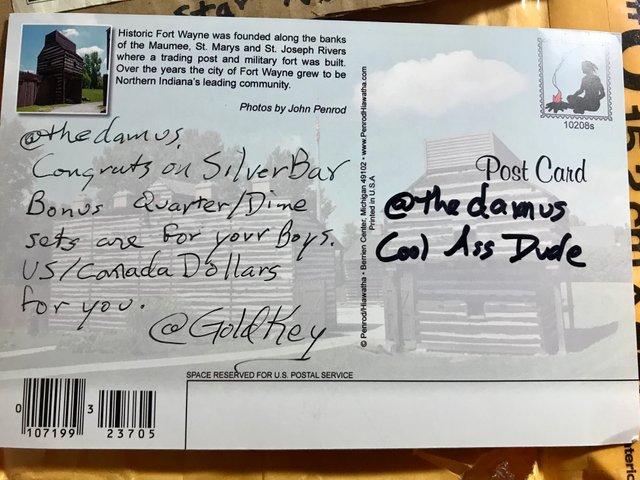 Historic Fort Wayne was founded along the banks
of the Maumee, St. Marys and St. Joseph Rivers
where a trading post and military fort was built.
Over the years the city of Fort Wayne grew to be
Northern Indiana's leading community.
Photos by John Penrod
@thedamus,
Congrats on SilverBar
Bonus Quarter/Dime
sets are for your Boys.
US/Canada Dollars
for you.
@GoldKey
© Penrod/Hiawatha • Berrien Center, Michigan 49102 • www.PenrodHiawatha.com
Printed in U.S.A
10208s
Post Card
@thedamus
Cool Ass Dude
SPACE RESERVED FOR U.S. POSTAL SERVICE
0 107199 3 23705